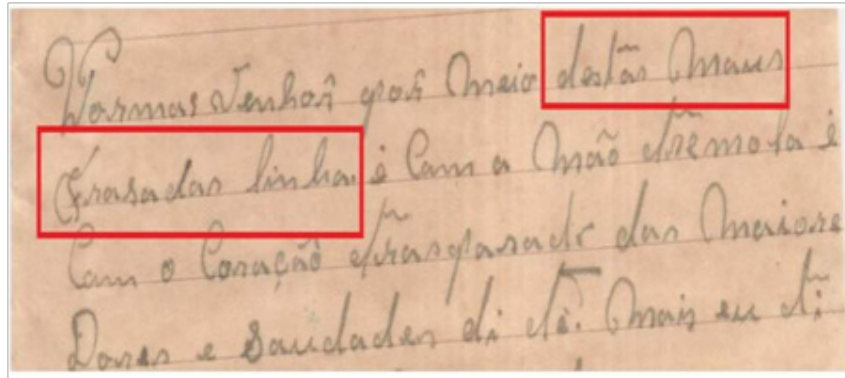 Normas Venhoi por Meio destas Maus
trasadas linha é Com a Mão trémola é
Com o Coração trasparado das Maiore
Dores e Saudades di tè. Mais eu ti